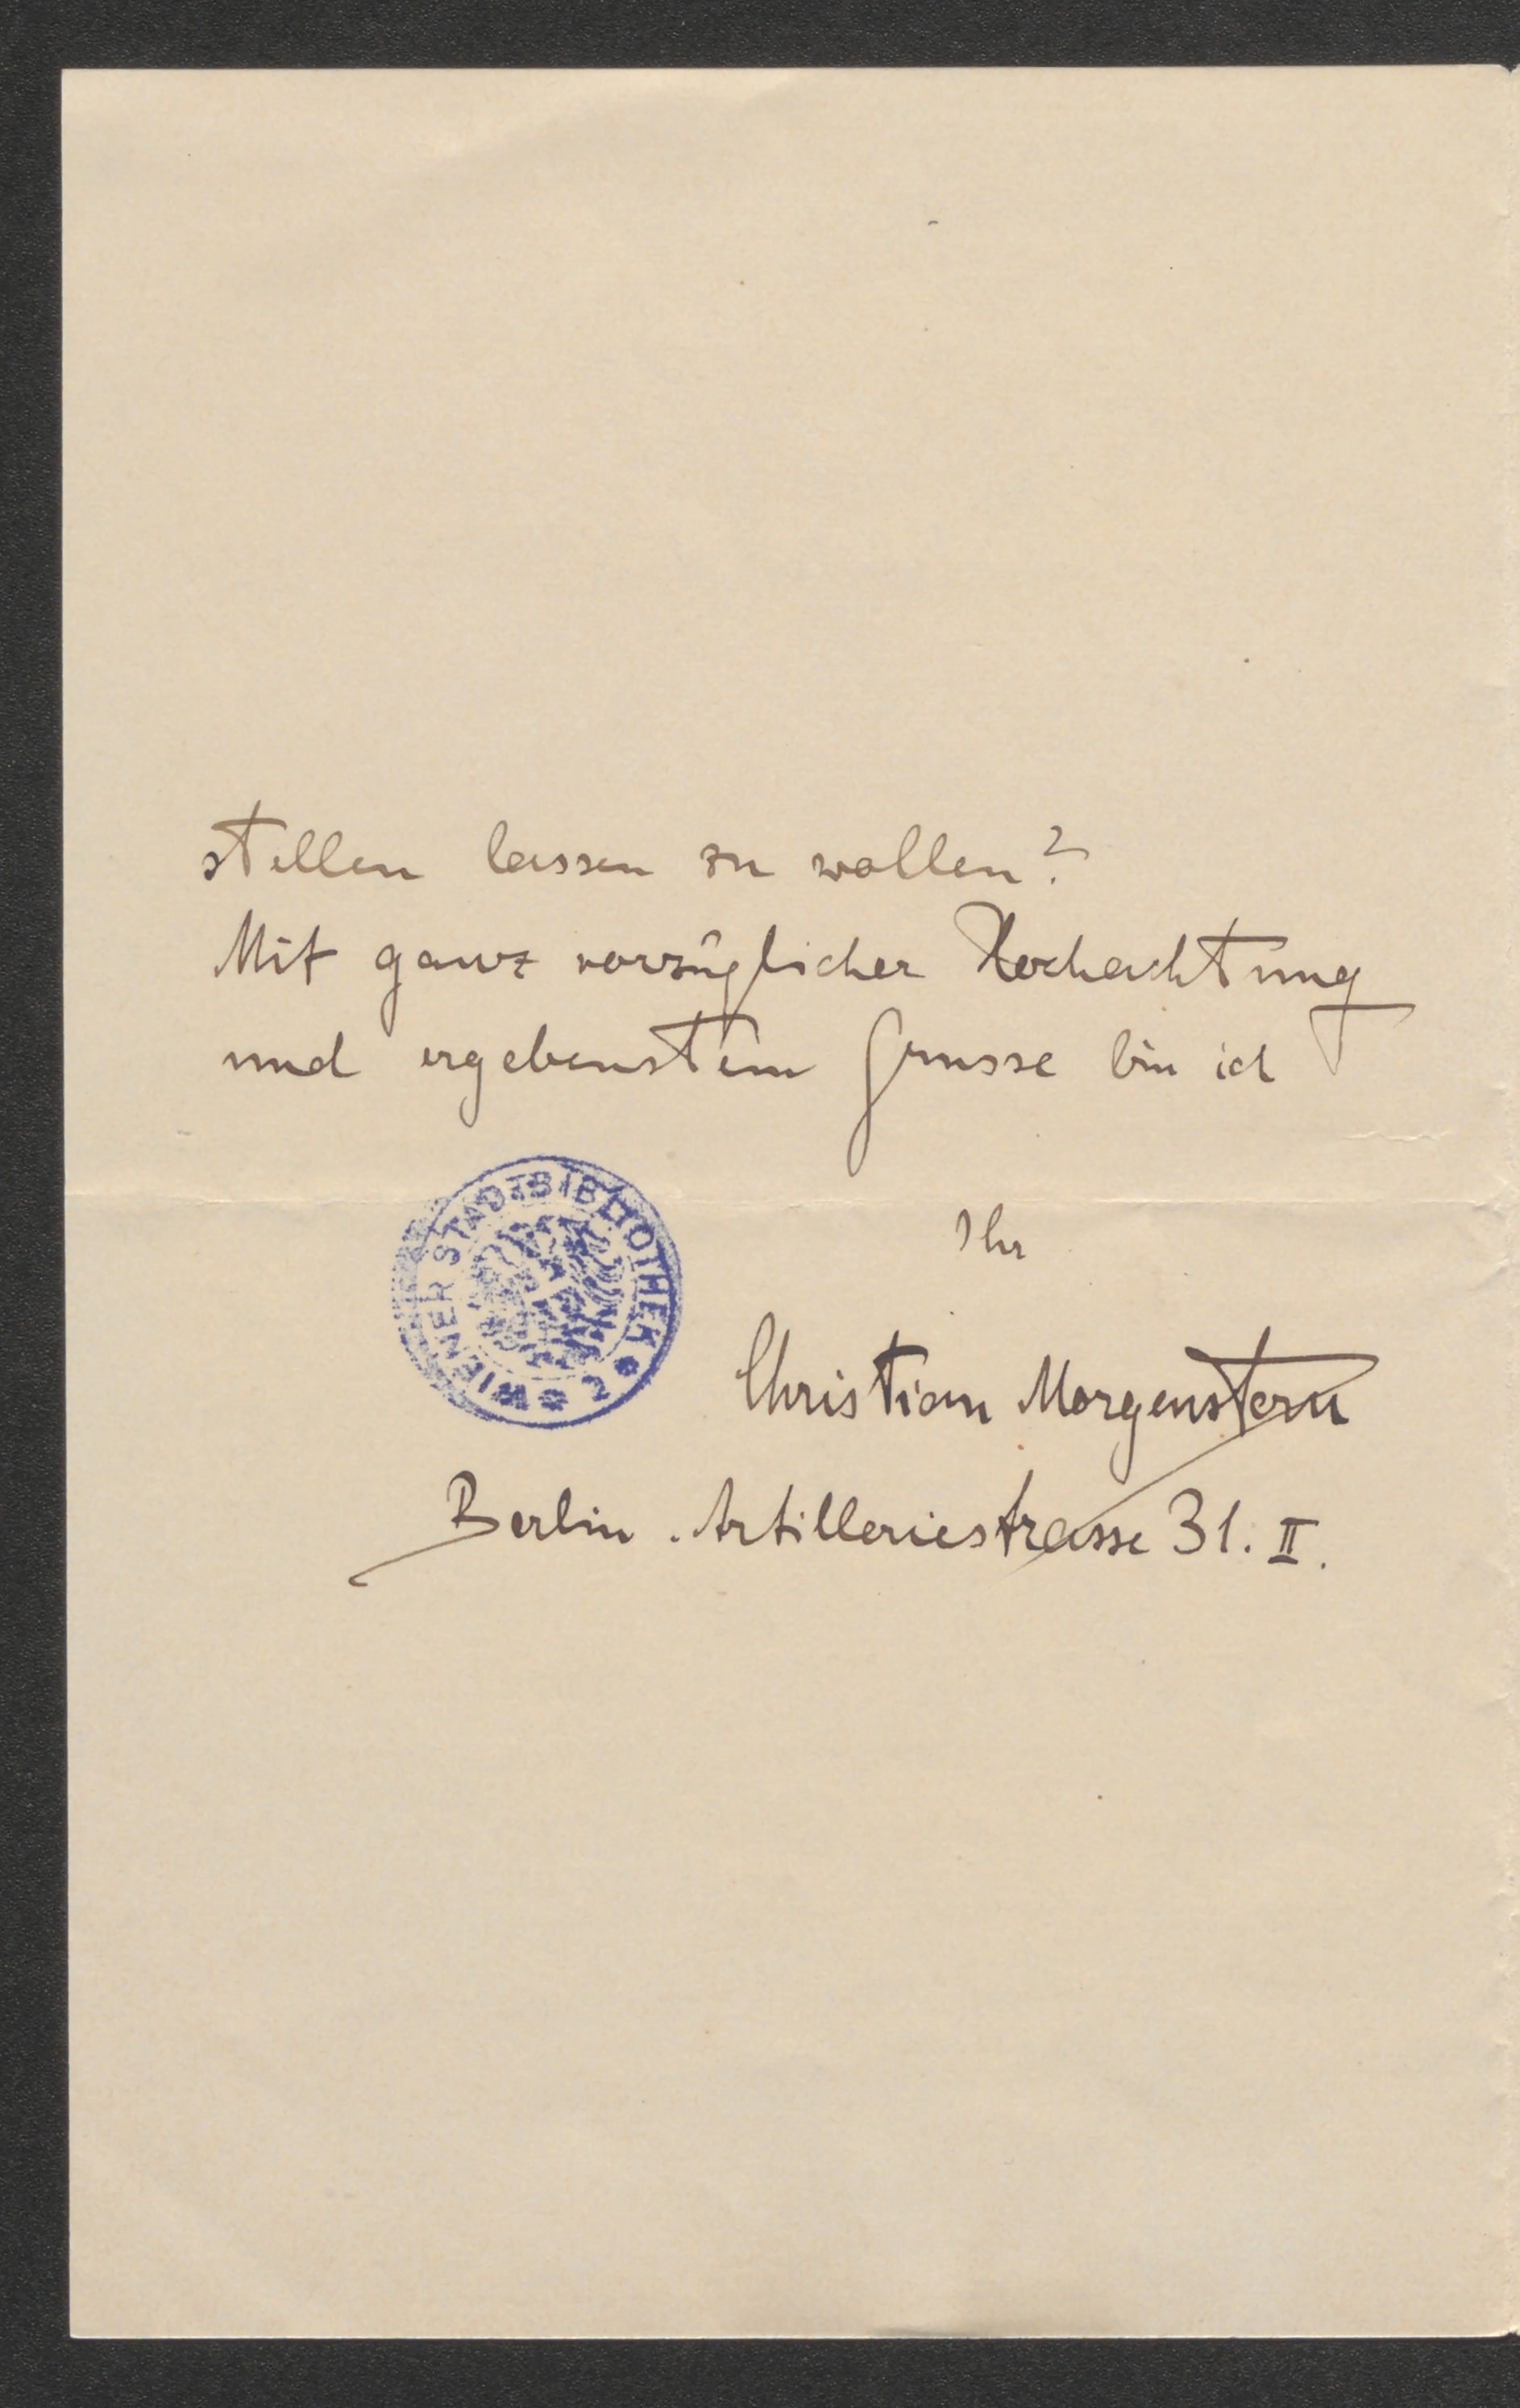 stellen lassen zu wollen?
Mit ganz vorzüglicher Hochachtung
und ergebenstem Grusse bin ich
Ihr
WIENER STADTBIBLIOTHEK
Christian Morgenstern
Berlin. Artilleriestrasse 31. II.